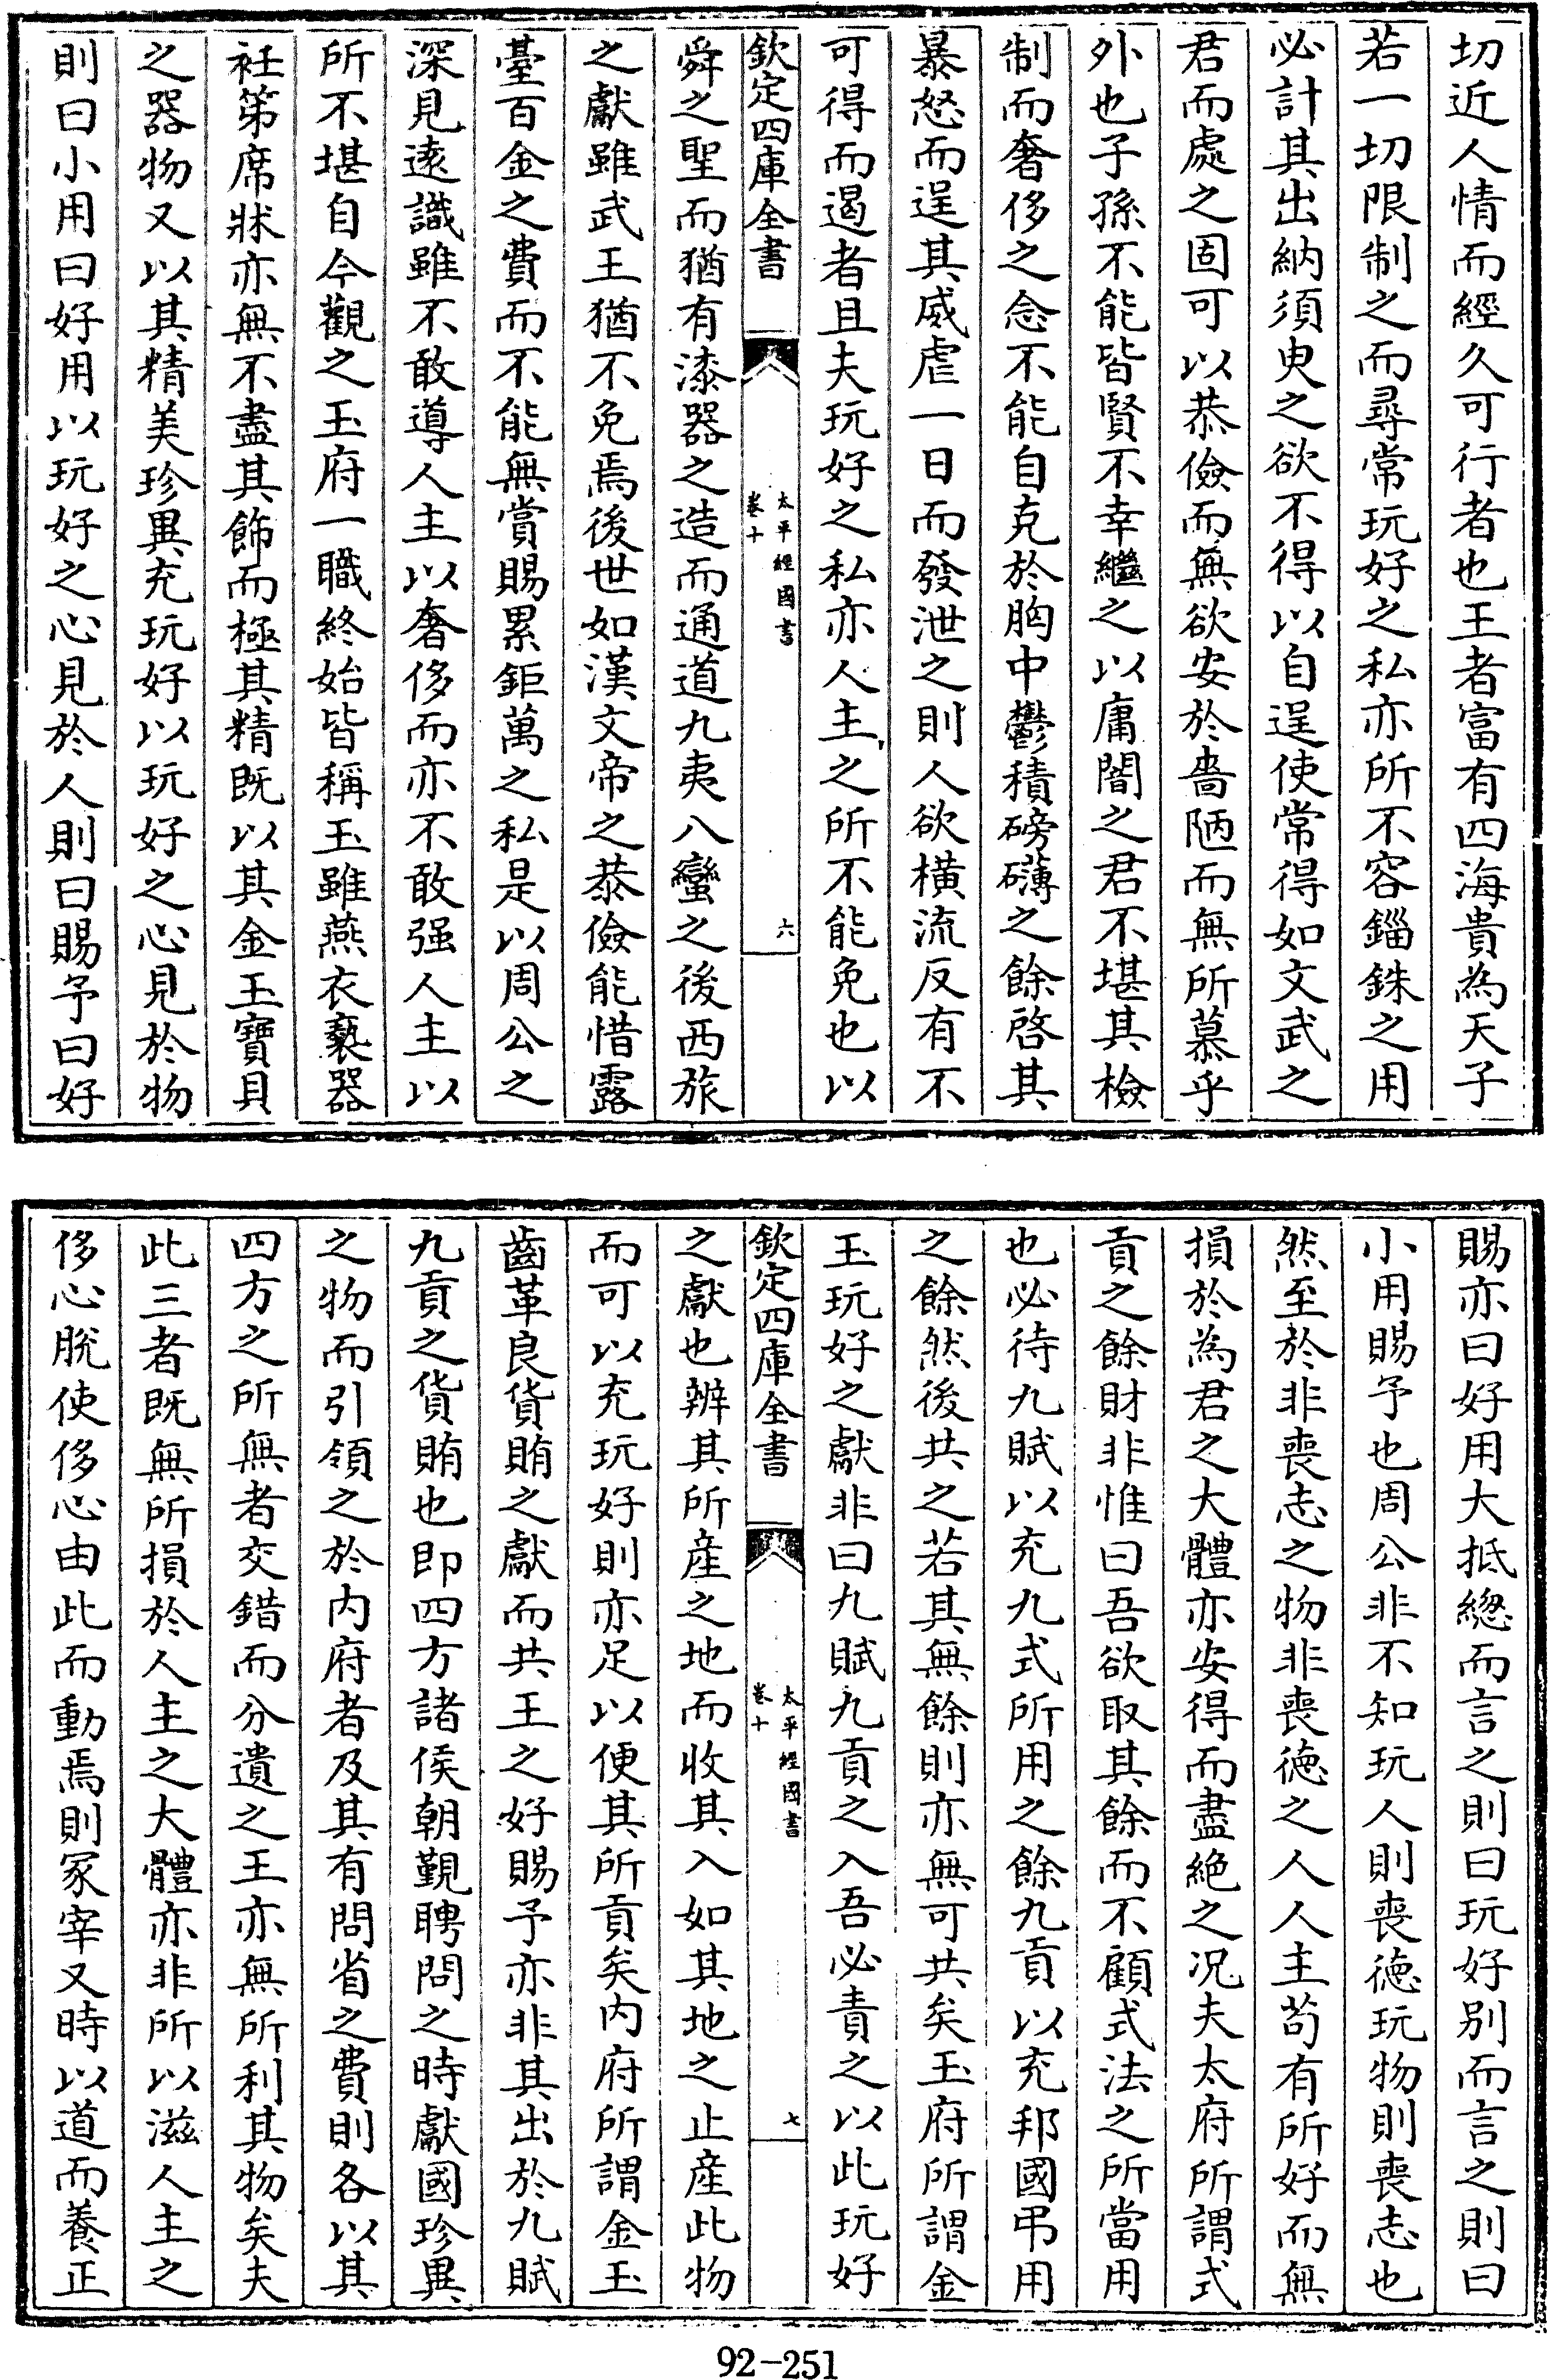 切近人情而經久可行者也王者富有四海貴為天子
若一切限制之而尋常玩好之私亦所不容錙銖之用
必計其出納須臾之欲不得以自逞使常得如文武之
君而處之固可以恭儉而無欲安於嗇陋而無所慕乎
外也子孫不能皆賢不幸繼之以庸闇之君不堪其檢
制而奢侈之念不能自克於胸中鬱積磅礴之餘啓其
暴怒而逞其威虐一日而發泄之則人欲橫流反有不
可得而遏者且夫玩好之私亦人主之所不能免也以
欽定四庫全書
太平經國書
卷十
六
舜之聖而猶有漆器之造而通道九夷八蠻之後西旅
之獻雖武王猶不免焉後世如漢文帝之恭儉能惜露
臺百金之費而不能無賞賜累鉅萬之私是以周公之
深見逺識雖不敢導人主以奢侈而亦不敢强人主以
所不堪自今觀之玉府一職終始皆稱玉雖燕衣褻器
衽笫席牀亦無不盡其飾而極其精既以其金玉寶貝
之器物又以其精美珍異充玩好以玩好之心見於物
則曰小用曰好用以玩好之心見於人則曰賜予曰好
賜亦曰好用大抵總而言之則曰玩好别而言之則曰
小用賜予也周公非不知玩人則喪德玩物則喪志也
然至於非喪志之物非喪德之人人主苟有所好而無
損於為君之大體亦安得而盡絶之况夫太府所謂式
貢之餘財非惟曰吾欲取其餘而不顧式法之所當用
也必待九賦以充九式所用之餘九貢以充邦國弔用
之餘然後共之若其無餘則亦無可共矣玉府所謂金
玉玩好之獻非曰九賦九貢之入吾必責之以此玩好
欽定四庫全書
太平經國書
卷十
七
之獻也辨其所産之地而收其入如其地之止産此物
而可以充玩好則亦足以便其所貢矣内府所謂金玉
齒革良貨賄之獻而共王之好賜予亦非其出於九賦
九貢之貨賄也即四方諸侯朝覲聘問之時獻國珍異
之物而引領之於内府者及其有問省之費則各以其
四方之所無者交錯而分遺之王亦無所利其物矣夫
此三者既無所損於人主之大體亦非所以滋人主之
侈心脫使侈心由此而動焉則冢宰又時以道而養正
92-251